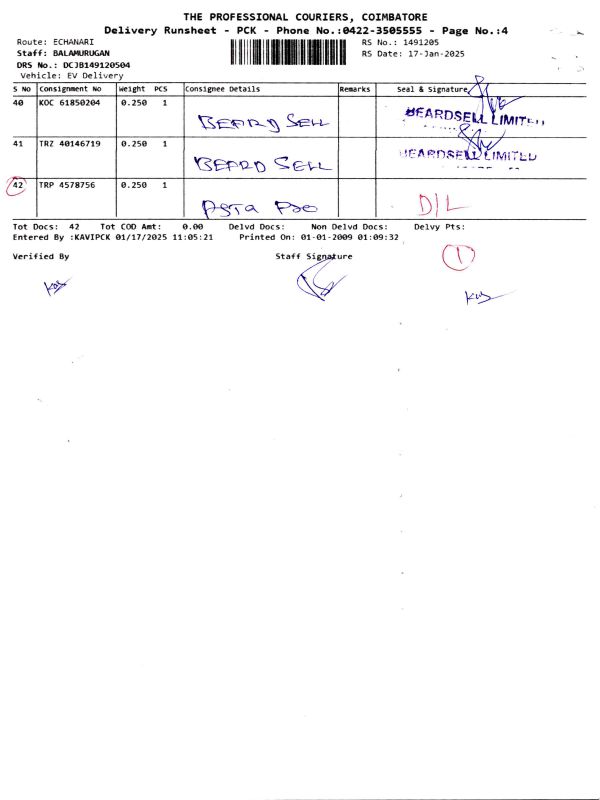 THE PROFESSIONAL COURIERS, COIMBATORE
Delivery Runsheet - PCK - Phone No.:0422-3505555 - Page No.:4
Route: ECHANARI
RS No.: 1491205
Staff: BALAMURUGAN
RS Date: 17-Jan-2025
DRS No.: DCJB149120504
Vehicle: EV Delivery
S No Consignment No Weight PCS Consignee Details Remarks Seal & Signature
40 KOC 61850204 0.250 1
BEARD SELL BEARDSELL LIMITED
41 TRZ 40146719 0.250 1
BEARD SELL BEARDSELL LIMITED
42 TRP 4578756 0.250 1
D/L
Tot Docs: 42 Tot COD Amt: 0.00 Delvd Docs: Non Delvd Docs: Delvy Pts:
Entered By :KAVIPCK 01/17/2025 11:05:21 Printed On: 01-01-2009 01:09:32
1
Verified By Staff Signature